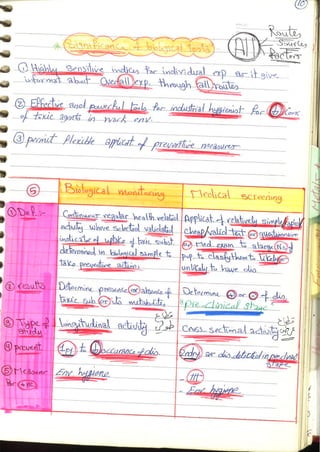 10
* Significance of biological tests
All
Routes
Sources
Factors
① Highly sensitive indices for individual exp. as it give
informat. about overall exp. through all routes
② Effective and powerful tools for industrial hygienist for control
of toxic agents in work env.
③ permit flexible applicat. of preventive measures
⑤
Biological monitoring
Medical screening
① Def:-
Continuous regular health related
activity where selected validated
indicator of uptake of toxic subst.
determined in biological sample to
take preventive action.
Applicat. of relatively simple
cheap valid test or questionnaire
or med. exam to a large No. of
pop. to classify them to likely or
unlikely to have dis.
② results
Determine presence or absence of
toxic sub. or its metabolites
Determine + or - of dis.
"Pre clinical stage"
③ Type of study
Longitudinal activity
Cross sectional activity
④ prevent.
1ry to occurrence of dis.
2ndry as dis. detected in preclinical
stage
⑤ Measures
for +ve
Env. hygiene
- ttt
- Env. hygiene